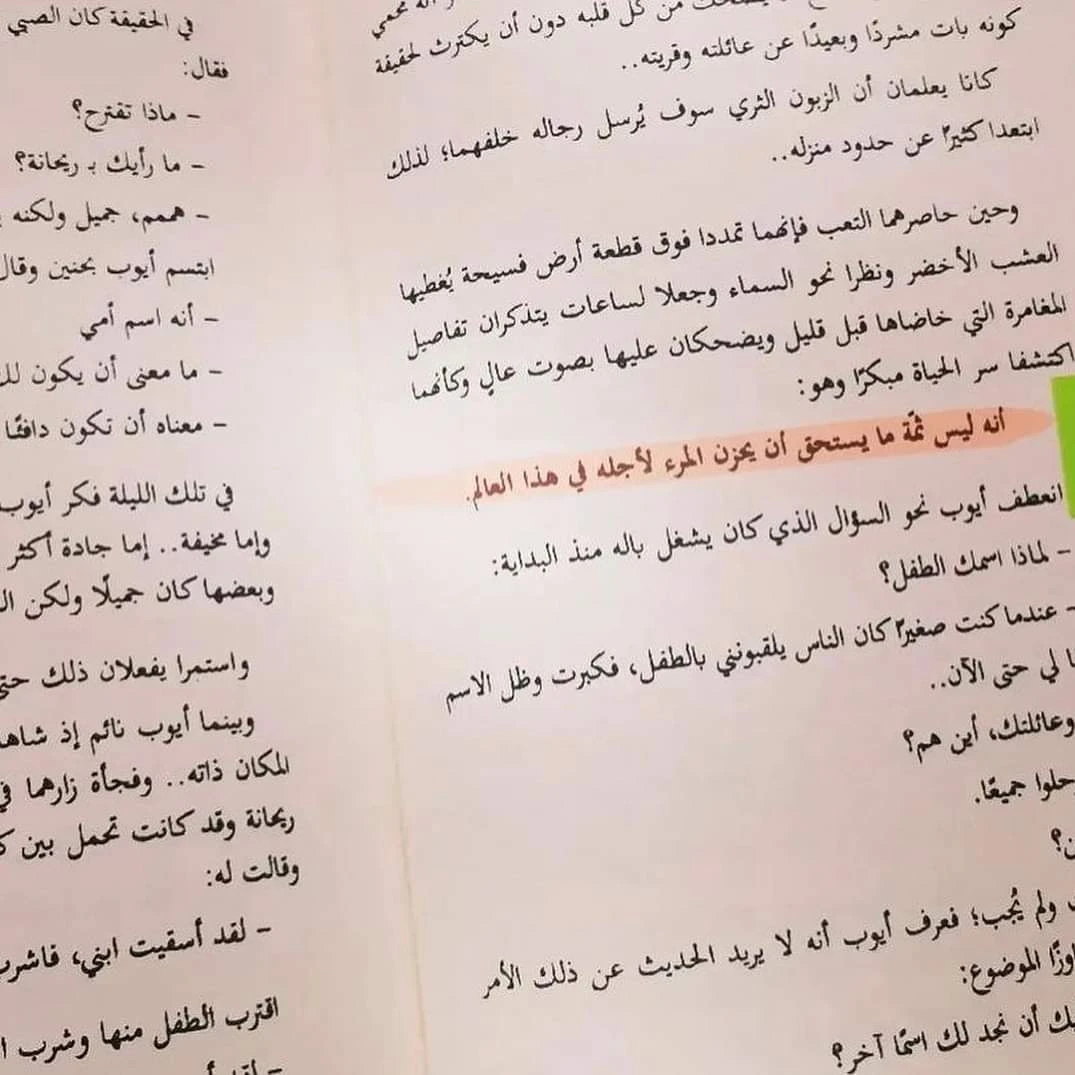 من كل قلبه دون أن يكترث لحقيقة
كونه بات مشردًا وبعيدًا عن عائلته وقريته..
كانا يعلمان أن الزبون الثري سوف يُرسل رجاله خلفهما؛ لذلك
ابتعدا كثيرًا عن حدود منزله..
وحين حاصرهما التعب فإنهما تمددا فوق قطعة أرض فسيحة يُغطيها
العشب الأخضر ونظرا نحو السماء وجعلا لساعات يتذكران تفاصيل
المغامرة التي خاضاها قبل قليل ويضحكان عليها بصوت عالٍ وكأنهما
اكتشفا سر الحياة مبكرًا وهو:
أنه ليس ثمّة ما يستحق أن يحزن المرء لأجله في هذا العالم.
انعطف أيوب نحو السؤال الذي كان يشغل باله منذ البداية:
- لماذا اسمك الطفل؟
- عندما كنت صغيرًا كان الناس يلقبونني بالطفل، فكبرت وظل الاسم
لي حتى الآن..
وعائلتك، أين هم؟
جميعًا.
ولم يُجب؛ فعرف أيوب أنه لا يريد الحديث عن ذلك الأمر
الموضوع:
أن نجد لك اسمًا آخر؟
في الحقيقة كان الصبي
فقال:
- ماذا تقترح؟
- ما رأيك بـ ريحانة؟
- هممم، جميل ولكنه
ابتسم أيوب بحنين وقال
- أنه اسم أمي
- ما معنى أن يكون
- معناه أن تكون دافئًا
في تلك الليلة فكر أيوب
وإما مخيفة.. إما جادة أكثر
وبعضها كان جميلًا ولكن
واستمرا يفعلان ذلك حتى
وبينما أيوب نائم إذ
المكان ذاته.. وفجأة زارهما
ريحانة وقد كانت تحمل بين
وقالت له:
- لقد أسقيت ابني،
اقترب الطفل منها وشرب